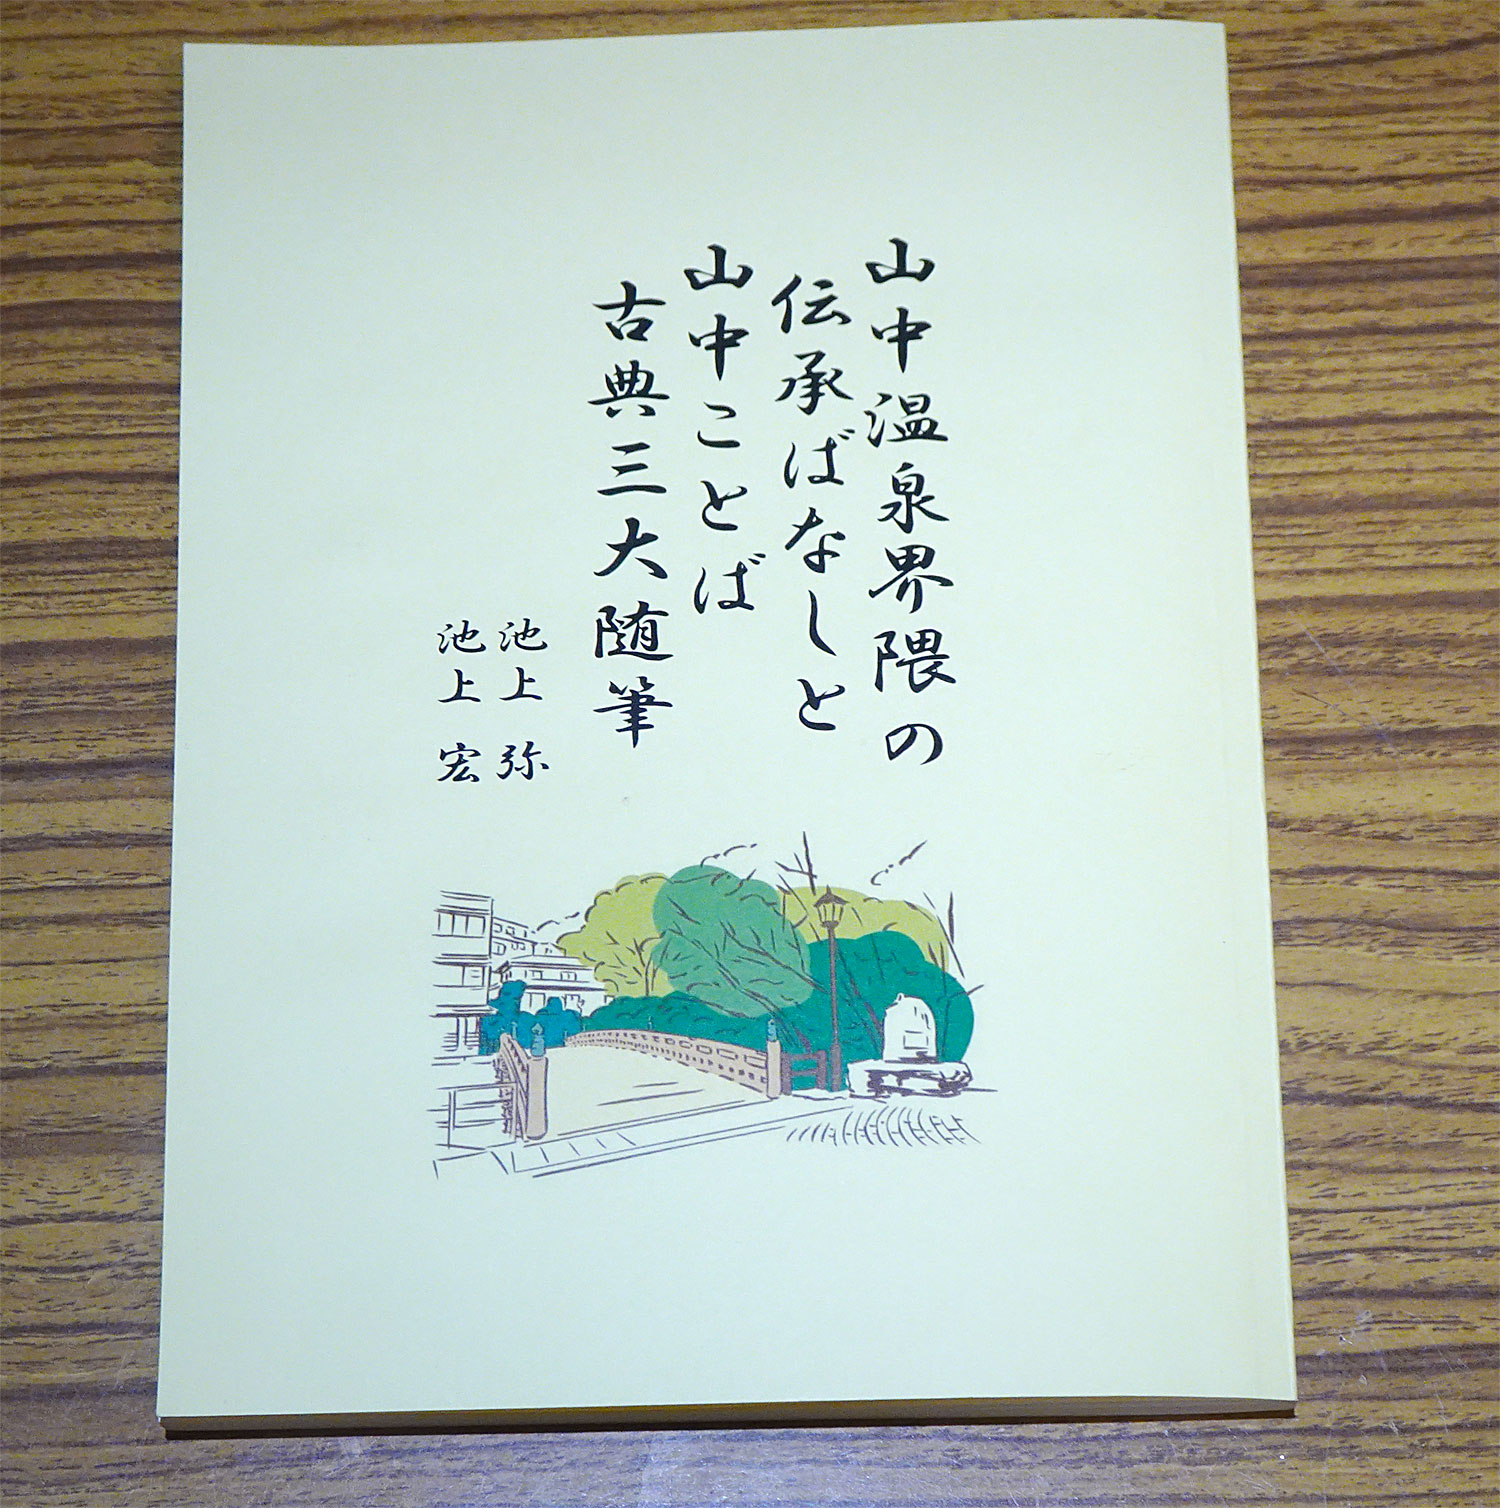 山中温泉界隈の
伝承ばなしと
山中ことば
古典三大随筆
池上 弥
池上 宏